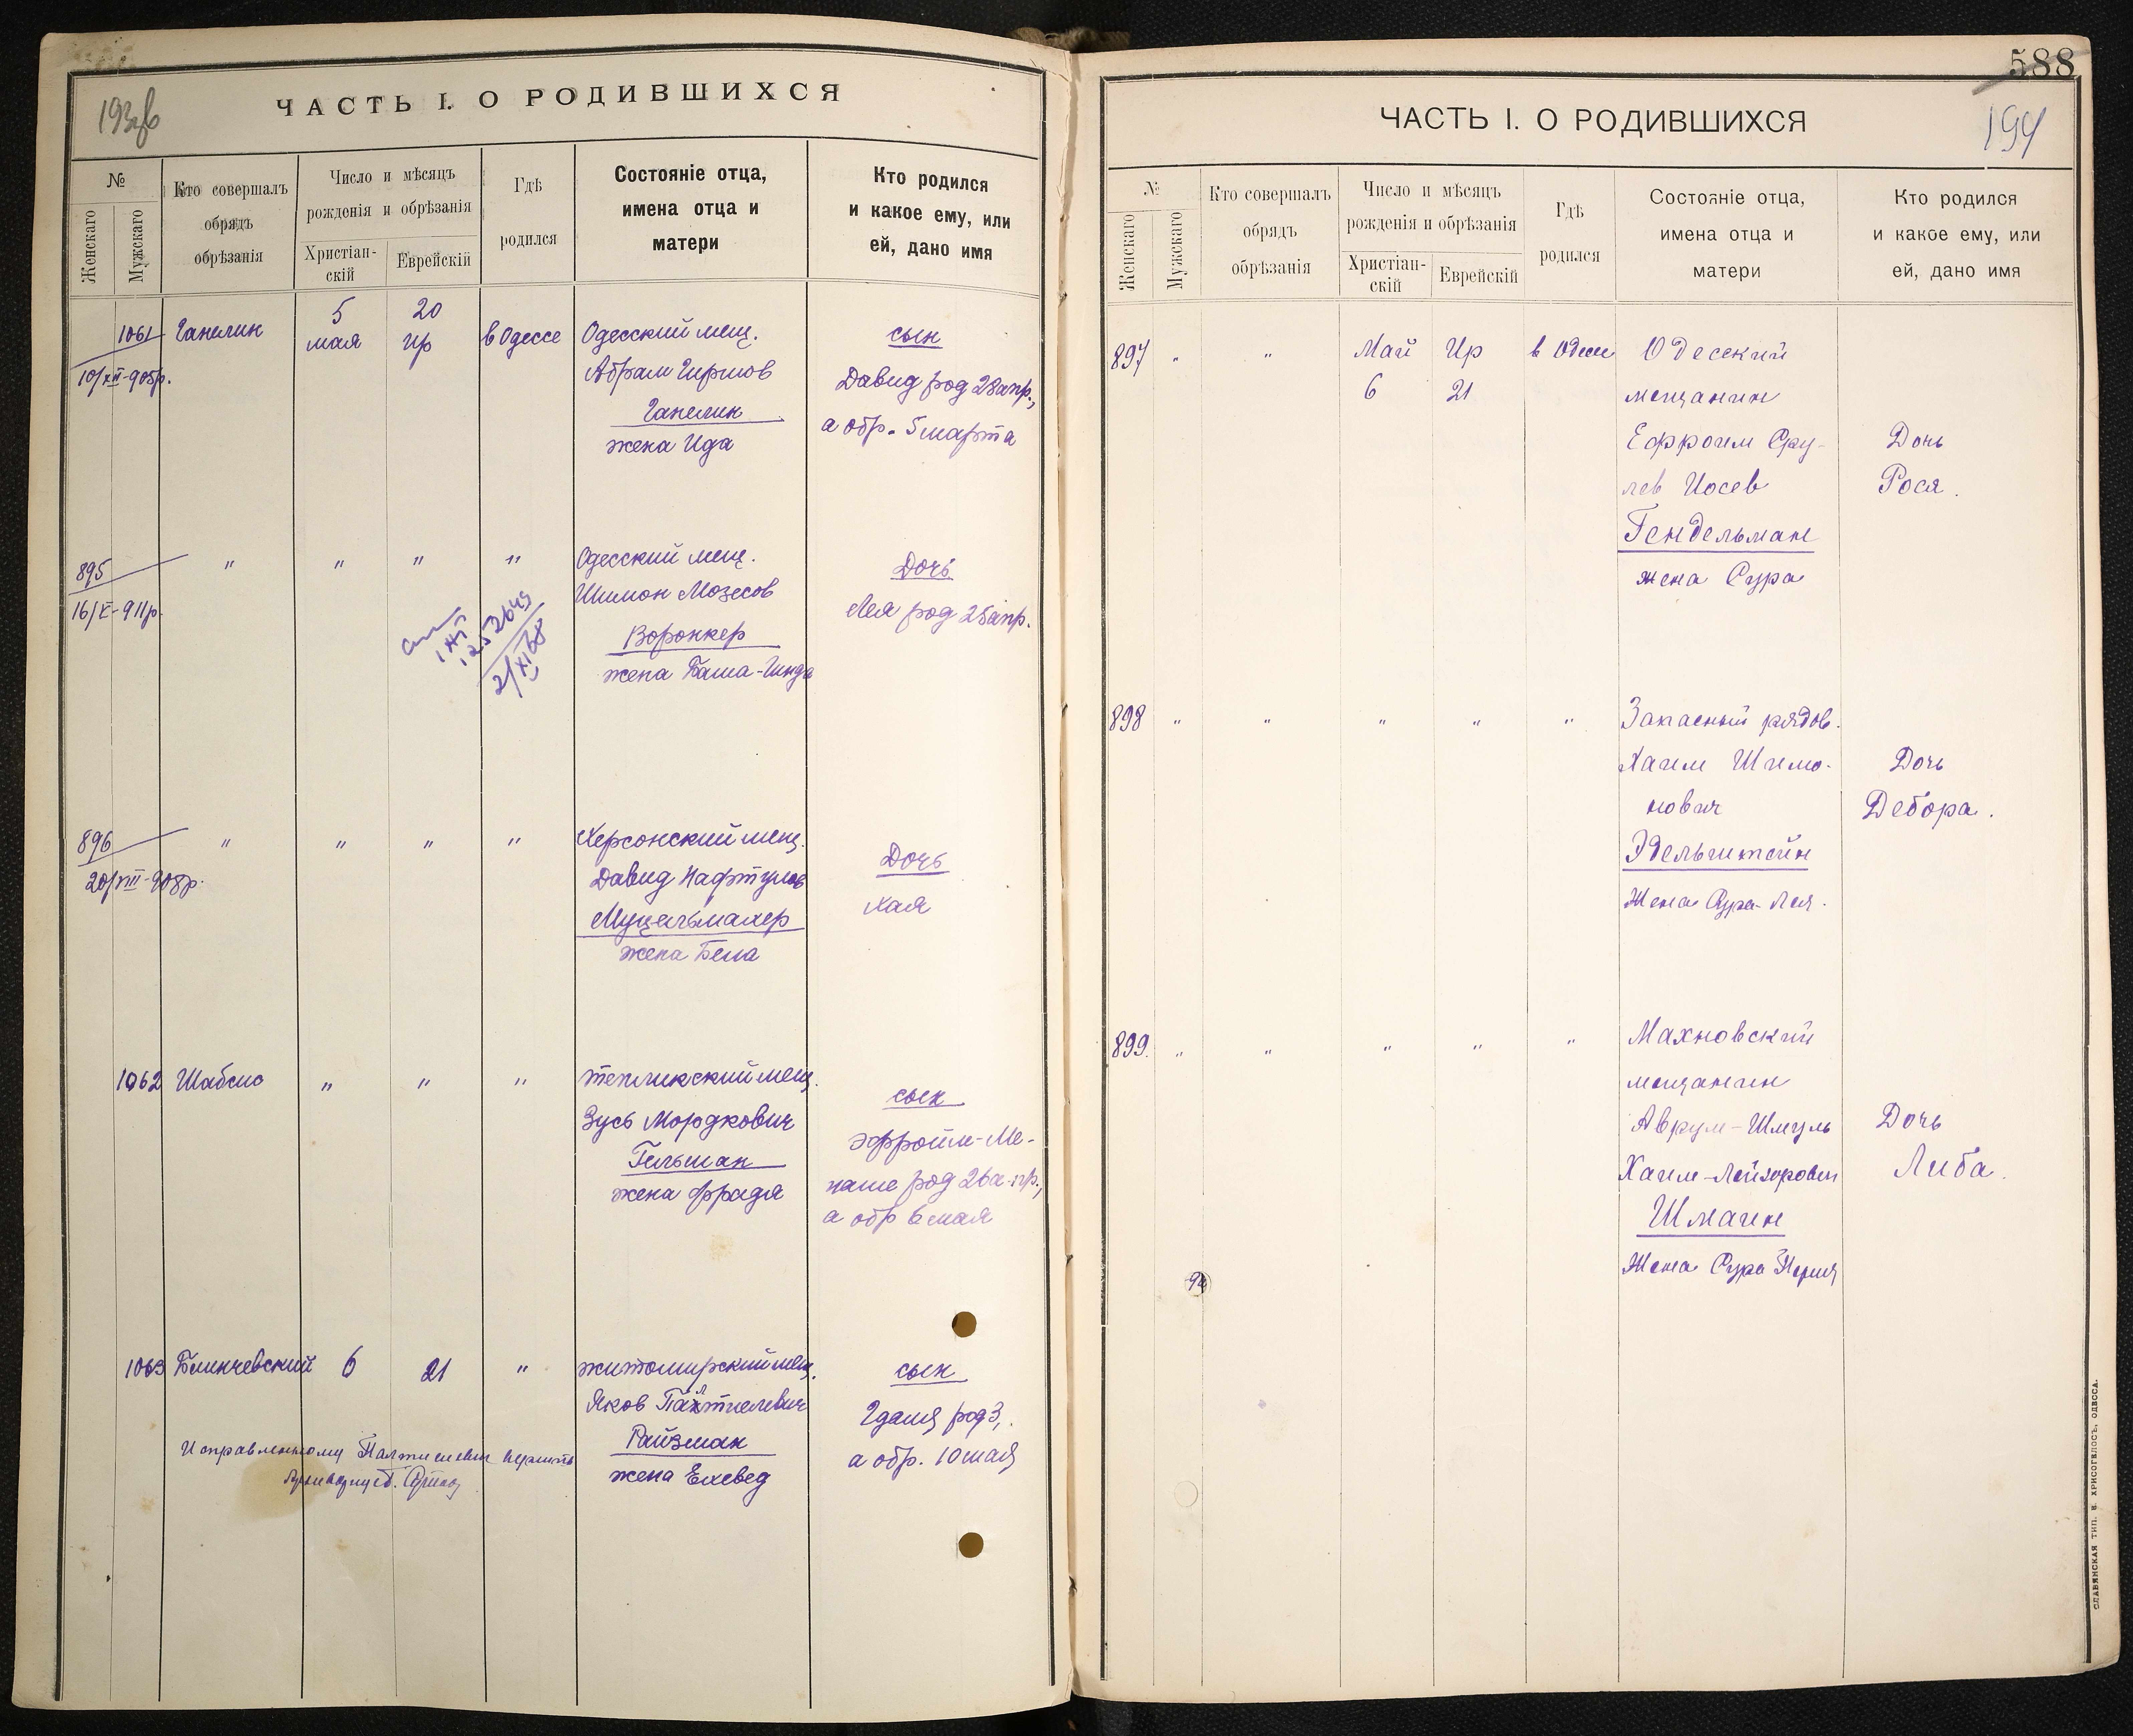 193об
ЧАСТЬ I. О РОДИВШИХСЯ
№
Женскаго
Мужскаго
Кто совершалъ
обрядъ
обрѣзанія
Число и мѣсяцъ
рожденія и обрѣзанія
Христіан-
скій
Еврейскій
Гдѣ
родился
Состояніе отца,
имена отца и
матери
Кто родился
и какое ему, или
ей, дано имя
1061
10/XII-905р.
Ганелин
5
мая
20
Ир
в Одессе
Одесский мещ.
Абрам Гиршов
Ганелин
жена Ида
сын
Давид род 28 апр.,
а обр. 5 марта
895
16/X-911р.
"
"
"
"
Одесский мещ.
Шимон Мозесов
Воронкер
жена Баша-Гинда
Дочь
Лея род 25 апр.
2/XI 68
896
20/VIII-908р.
"
"
"
"
Херсонский мещ.
Давид Нафтулов
Муцельмахер
жена Бела
Дочь
Хая
1062
Шабсис
"
"
"
Тепликский мещ.
Зусь Мордкович
Гильман
жена Фрадя
сын
Эфроим-Ме-
наше род 26 апр.,
а обр 6 мая
1063
Блинчевский
6
21
"
житомирский мещ.
Яков
Райзман
жена Ехевед
сын
Гдаля род 3,
а обр. 10 мая
Исправленному Палтиелевич верить
588
194
ЧАСТЬ I. О РОДИВШИХСЯ
№
Женскаго
Мужскаго
Кто совершалъ
обрядъ
обрѣзанія
Число и мѣсяцъ
рожденія и обрѣзанія
Христіан-
скій
Еврейскій
Гдѣ
родился
Состояніе отца,
имена отца и
матери
Кто родился
и какое ему, или
ей, дано имя
897
"
"
Май
6
Ир
21
в Одессе
Одесский
мещанин
Ефроим Сру-
лев Иосев
Гендельман
жена Сура
Дочь
Рося.
898
"
"
"
"
"
Запасный рядов.
Хаим Шимо-
нович
Эдельштейн
Жена Сура-Лея.
Дочь
Дебора.
899.
"
"
"
"
"
Махновский
мещанин
Аврум-Шмуль
Хаим-Лейзорович
Шмагин
Жена Сура Перля
Дочь
Либа.
94
СЛАВЯНСКАЯ ТИП. Н. ХРИСОГЕЛОСЪ, ОДЕССА.